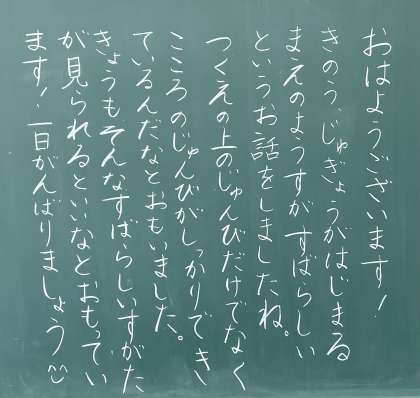 おはようございます!
きのう じゅぎょうがはじまる
まえのようすがすばらしい
というお話をしましたね。
つくえの上のじゅんびだけでなく
こころのじゅんびがしっかりでき
ているんだなとおもいました。
きょうもそんなすばらしいすがた
が見られるといいなとおもってい
ます!一日がんばりましょう